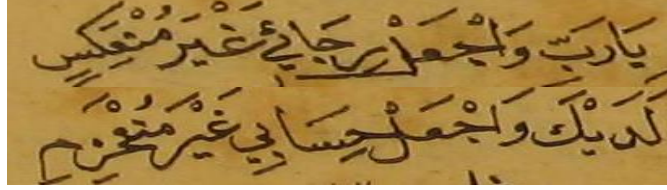 يَارَبِّ وَاجْعَلْ رَجَائِي غَيْرَ مُنْعَكِسٍ
لَدَيْكَ وَاجْعَلْ حِسَابِي غَيْرَ مُنْخَرِمِ